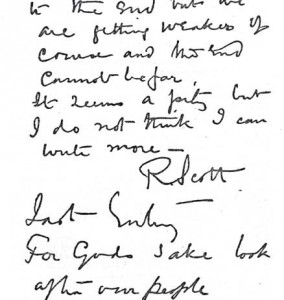 to the end but we
are getting weaker of
course and the end
cannot be far,
It seems a pity but
I do not think I can
write more —
R. Scott
Last Entry
For Gods sake look
after our people